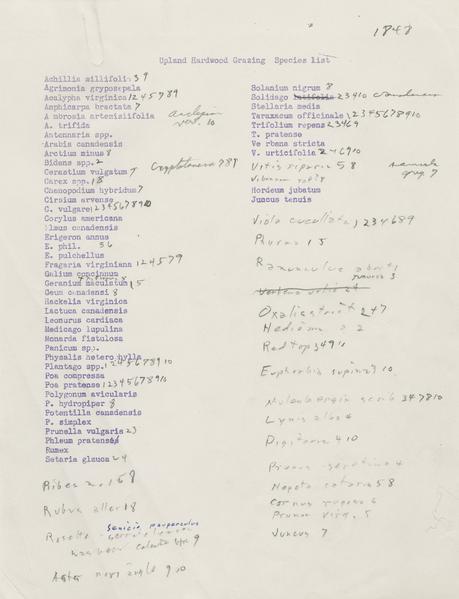 1848
Upland Hardwood Grazing Species list
Achillia millifolia 3 9
Agrimonia gryposepala
Acalypha virginica 1 2 4 5 7 8 9
Amphicarpa bractata 7
A mbrosia artemisiifolia
A. trifida
Antennaria spp.
Arabis canadensis
Arctium minus 8
Bidens spp. 2
Cerastium vulgatum 7
Carex spp. 1 8
Chenopodium hybridus 7
Cirsium arvense
C. vulgare 1 2 3 4 5 6 7 8 9 10
Corylus americana
Elmus canadensis
Erigeron annus
E. phil. 5 6
E. pulchellus
Fragaria virginiana 1 2 4 5 7 9
Galium concinnum
Geranium maculatum 1 5
Geum canadensi 8
Hackelia virginica
Lactuca canadensis
Leonurus cardiaca
Medicago lupulina
Monarda fistulosa
Panicum spp.
Physalis heterophylla
Plantago spp. 1 2 4 5 6 7 8 9 10
Poa compressa
Poa pratense 1 2 3 4 5 6 7 8 9 10
Polygonum avicularis
P. hydropiper 8
Potentilla canadensis
P. simplex
Prunella vulgaris 2 3
Phleum pratense
Rumex
Setaria glauca 2 4
Ribes
Rubus alle 1 8
Senicio pauperculus
9
Aster novi angle 9 10
Cryptotaenia 7 8 9
Solanium nigrum 8
Solidago latifolia 2 3 4 10
Stellaria media
Taraxacum officinale 1 2 3 4 5 6 7 8 9 10
Trifolium repens 2 3 4 6 9
T. pratense
Ve rbena stricta
V. urticifolia 2 4 6 9 10
Vitis riparia 5 8
Hordeum jubatum
Juncus tenuis
Viola cucullata 1 2 3 4 6 8 9
1 5
Ranunculus abort 1
Oxalis strict 2 4 7
Red top 3 4 9 10
Euphorbia supina 9 10
Muhlenbergia 3 4 7 8 10
Digitaria 4 10
Prunus serotina 4
Nepeta cataria 5 8
Cornus 6
Prunus virg. 5
Juncus 7